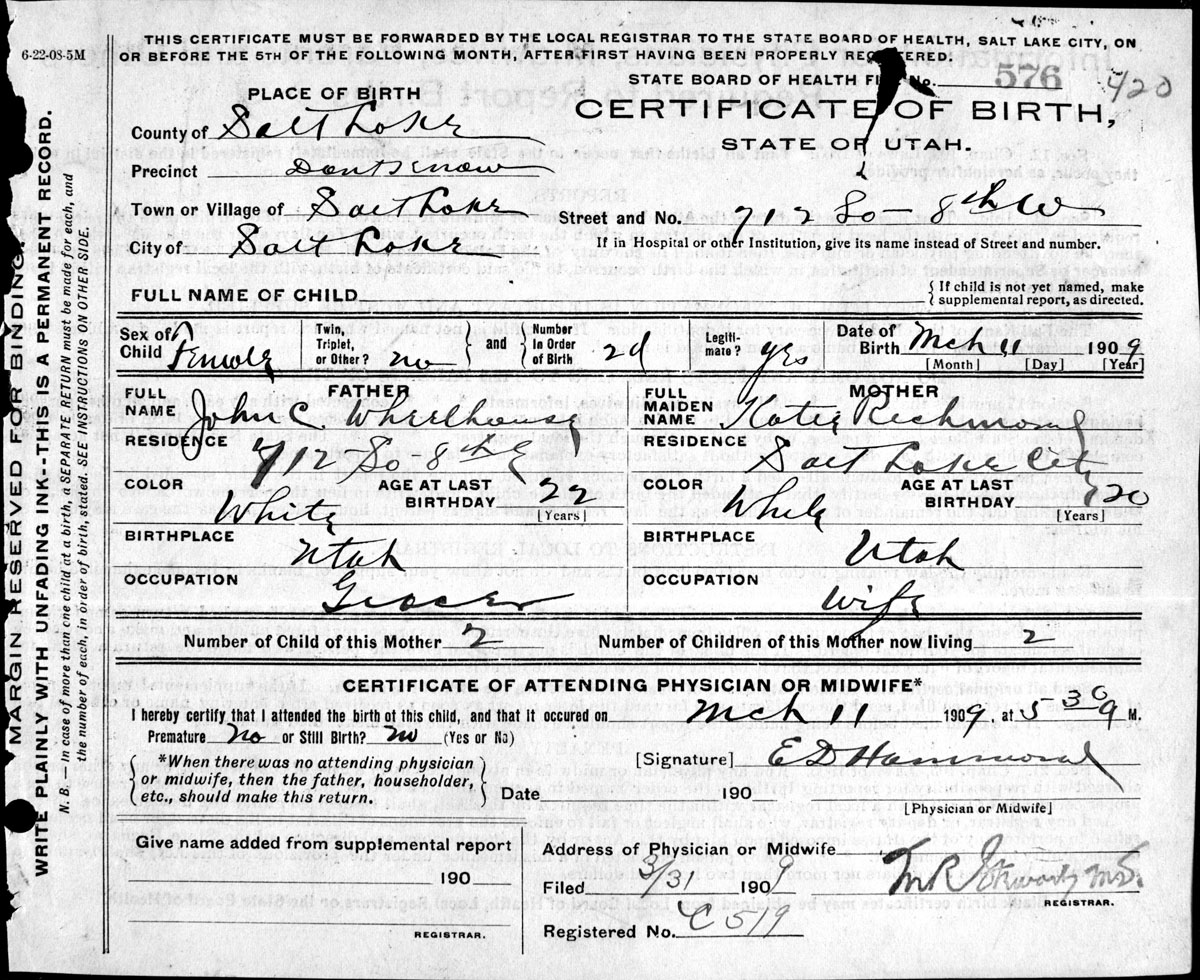 THIS CERTIFICATE MUST BE FORWARDED BY THE LOCAL REGISTRAR TO THE STATE BOARD OF HEALTH, SALT LAKE CITY, ON
6-22-08-5M
OR BEFORE THE 5TH OF THE FOLLOWING MONTH, AFTER FIRST HAVING BEEN PROPERLY
STATE BOARD OF HEALTH No. 576
420
PLACE OF BIRTH
CERTIFICATE OF BIRTH,
STATE OF UTAH.
County of Salt Lake
Precinct Dont Know
Town or Village of Salt Lake
Street and No. 712 So 8th W
City of Salt Lake
If in Hospital or other Institution, give its name instead of Street and number.
FULL NAME OF CHILD
{ If child is not yet named, make supplemental report, as directed.
Sex of Child Female
Twin, Triplet, or Other? no } and { Number In Order of Birth 2d
Legiti-mate? yes
Date of Birth Mch 11 1909
[Month] [Day] [Year]
FATHER
FULL NAME John C Wheelhouse
RESIDENCE 712 So 8th
COLOR White
AGE AT LAST BIRTHDAY 22
[Years]
BIRTHPLACE Utah
OCCUPATION Grocer
MOTHER
FULL MAIDEN NAME Katie Richmond
RESIDENCE Salt Lake City
COLOR White
AGE AT LAST BIRTHDAY 20
[Years]
BIRTHPLACE Utah
OCCUPATION Wife
Number of Child of this Mother 2
Number of Children of this Mother now living 2
CERTIFICATE OF ATTENDING PHYSICIAN OR MIDWIFE*
I hereby certify that I attended the birth of this child, and that it occured on Mch 11 1909, at 5 30 M.
Premature no or Still Birth? no (Yes or No)
{ *When there was no attending physician or midwife, then the father, householder, etc., should make this return. }
[Signature] E D Hammond
Date 190
[Physician or Midwife]
Give name added from supplemental report
190
REGISTRAR.
Address of Physician or Midwife
Filed 3/31 1909
REGISTRAR.
Registered No. C 519
MARGIN RESERVED FOR BINDING.
WRITE PLAINLY WITH UNFADING INK--THIS IS A PERMANENT RECORD.
N. B. — In case of more than one child at a birth, a SEPARATE RETURN must be made for each, and
the number of each, in order of birth, stated. SEE INSTRUCTIONS ON OTHER SIDE.